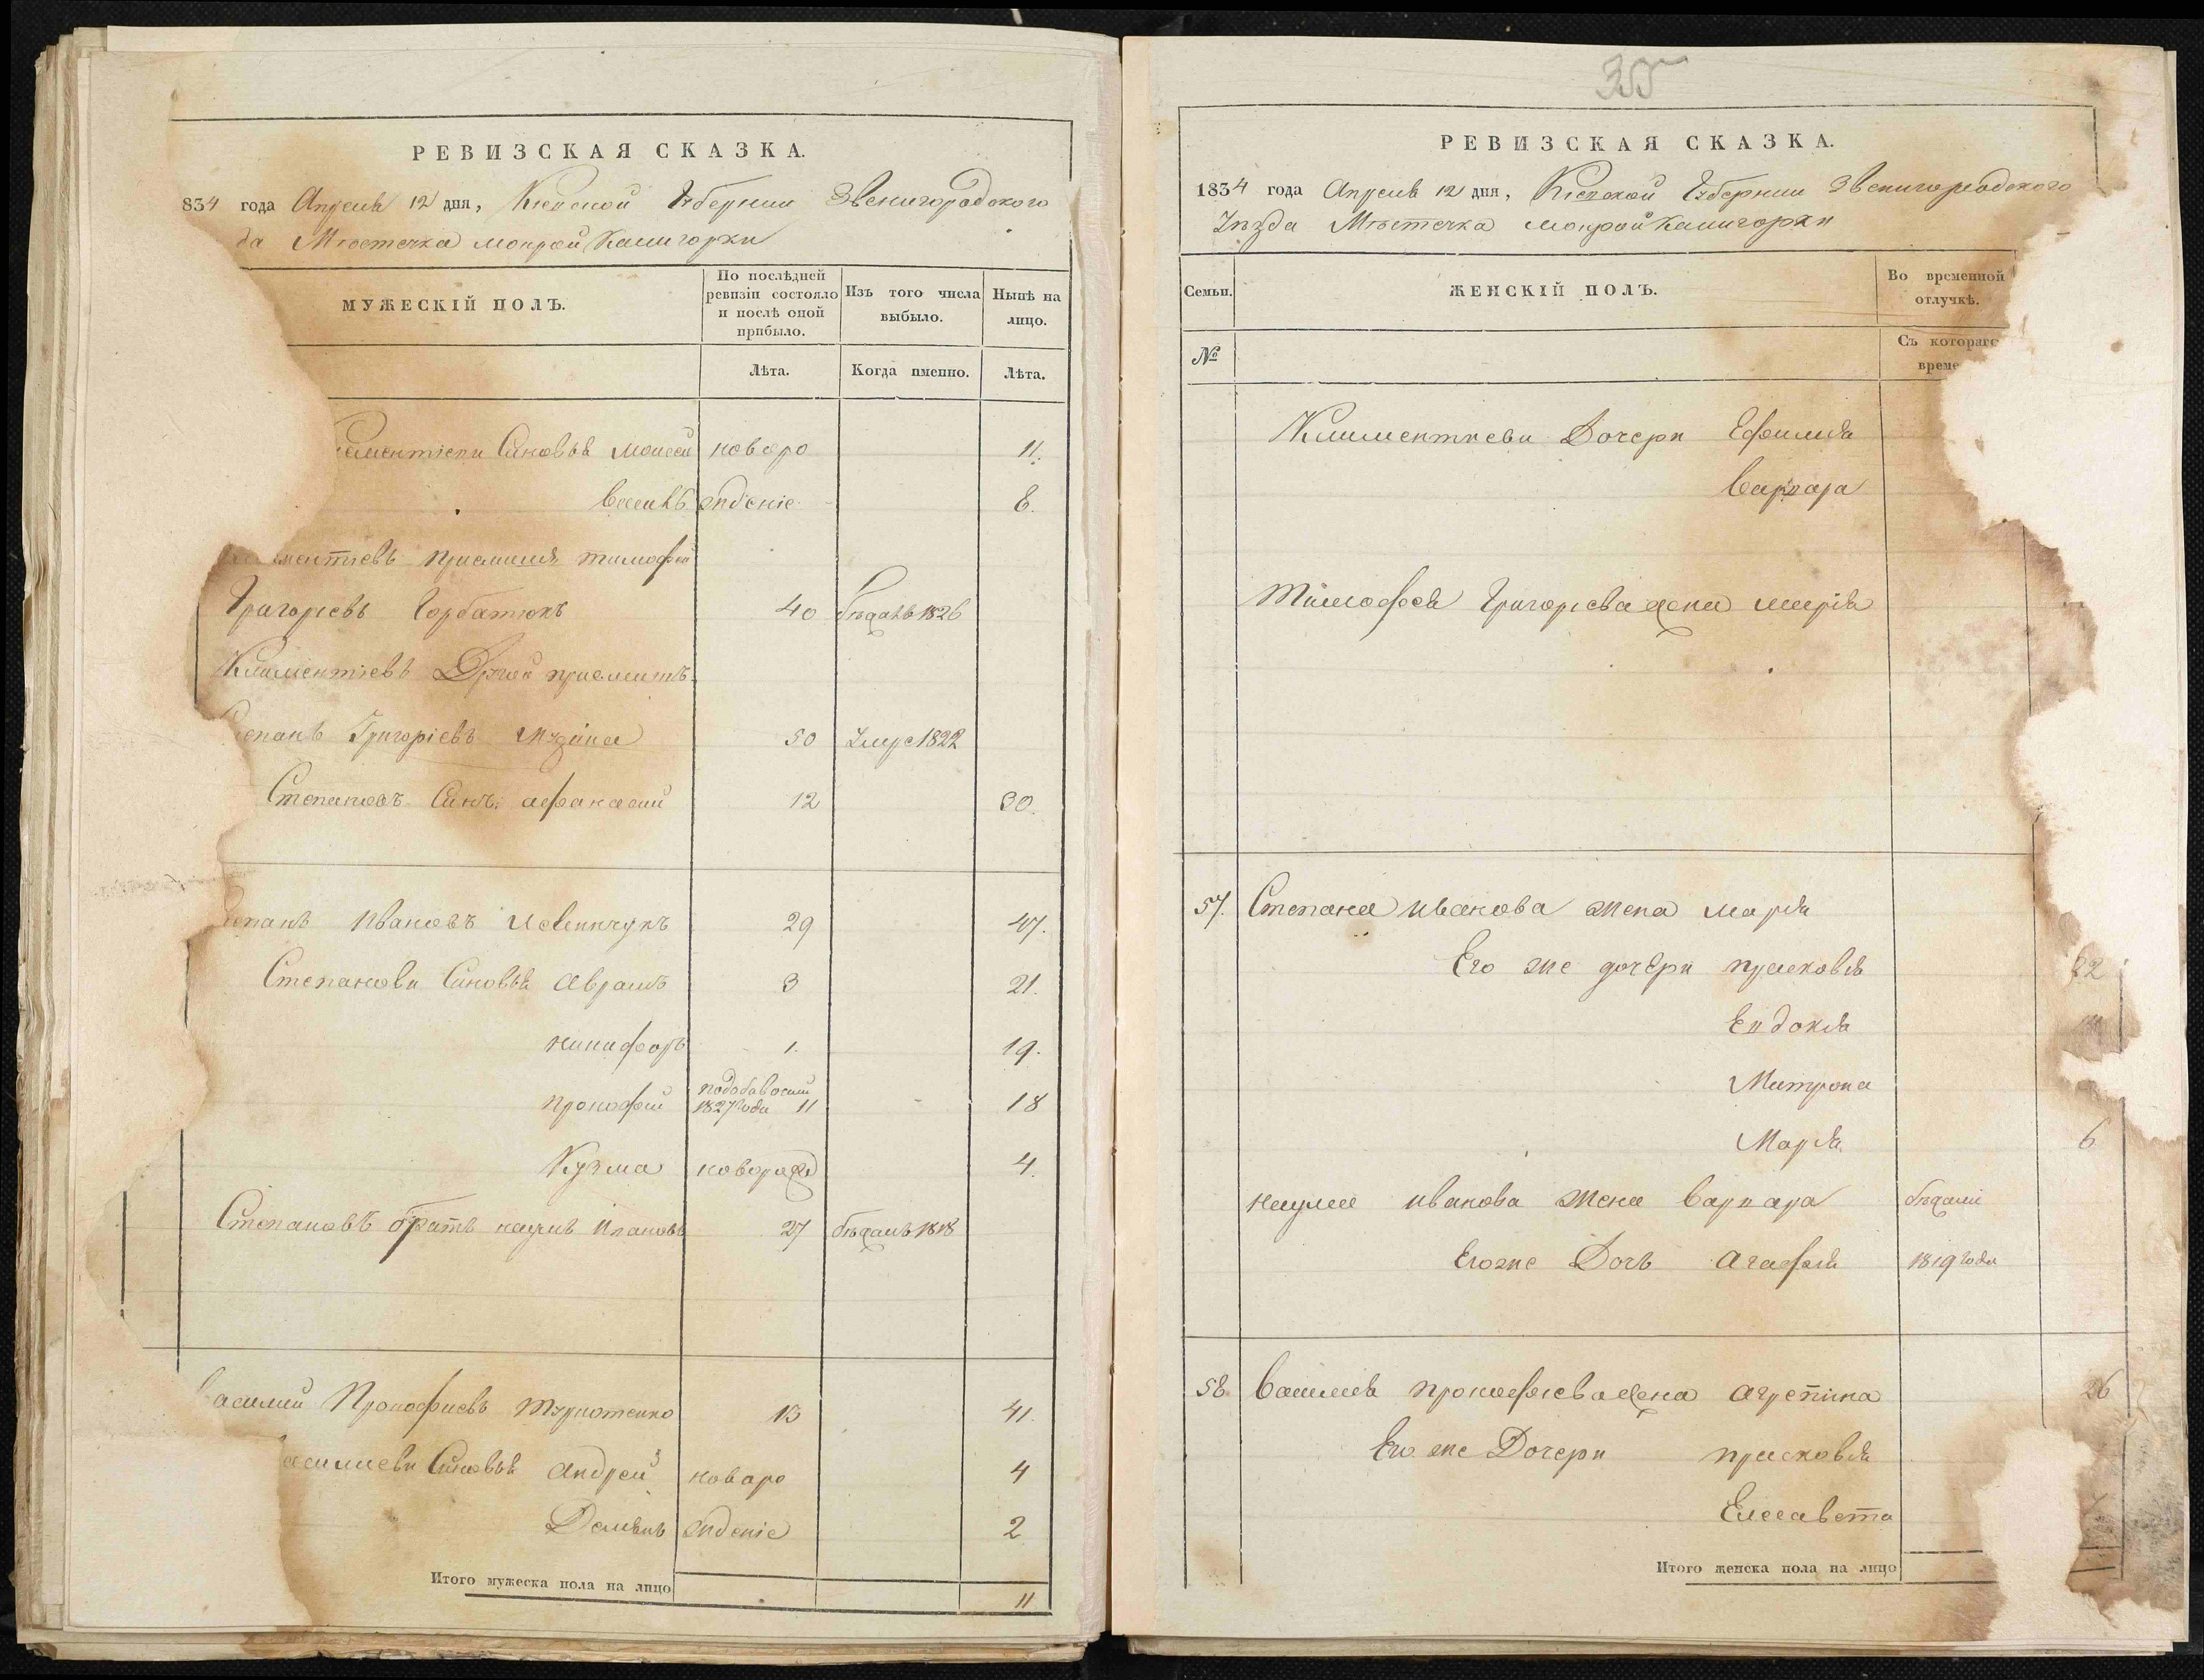 РЕВИЗСКАЯ СКАЗКА.
834 года Апреля 12 дня, Кіевской Губерніи Звенигородского
да Мѣстечка мокрой Калигорки
МУЖЕСКІЙ ПОЛЪ.
По послѣдней ревизіи состояло и послѣ оной прибыло.
Изъ того числа выбыло.
Нынѣ на лицо.
Лѣта.
Когда именно.
Лѣта.
лементіеви Синовья моисей новоро 11.
василь ждение 8.
ментіевъ приемишъ тимофей
Григорієвъ Горбатюкъ 40 бѣжалъ 1826
Климентіевъ Другой приемишъ
тепанъ Григоріевъ 50 Умре 1822
Степановъ Синъ афанасий 12 30.
тепанъ Ивановъ 29 47.
Степанови Синовья Аврамъ 3 21.
никифоръ 1. 19.
прокофий 1827 года 11 18
Кузма новорожд 4.
Степановъ братъ наумъ Ивановъ 27 бѣжалъ 1818
василий Прокофиевъ 41.
асилиеви Синовья андрей новоро 4
Демянъ ждение 2
Итого мужеска пола на лицо
11
35
РЕВИЗСКАЯ СКАЗКА.
1834 года Апреля 12 дня, Кіевской Губерніи Звенигородского
Уѣзда Мѣстечка мокрой Калигорки
Семьи.
ЖЕНСКІЙ ПОЛЪ.
Во временной отлучкѣ.
№
Съ котораго
време
Климентиеви Дочери Ефимия
Варвара
Тимофея Григориева жена марія
57. Степана иванова жена мария
Его же дочери прасковя 22
Евдокия
Матрона
Мария 6
наума иванова жена варвара бѣжали
Его же Дочъ агафия 1819 года
58. василия прокофиева жена агрепина 26
Его же Дочери прасковия
Елесавета
Итого женска пола на лицо